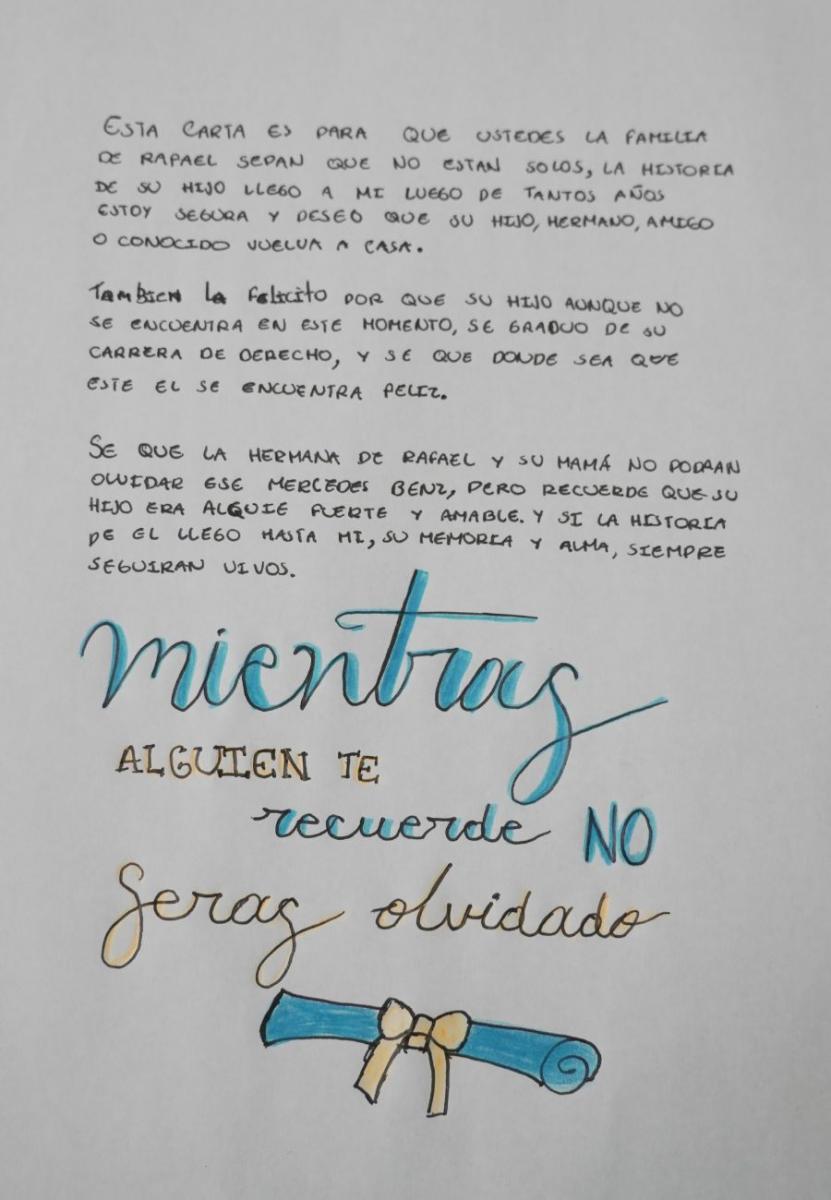 ESTA CARTA ES PARA QUE USTEDES LA FAMILIA
DE RAFAEL SEPAN QUE NO ESTAN SOLOS, LA HISTORIA
DE SU HIJO LLEGO A MI LUEGO DE TANTOS AÑOS
ESTOY SEGURA Y DESEO QUE SU HIJO, HERMANO, AMIGO
O CONOCIDO VUELVA A CASA.
Tambien la felicito POR QUE SU HIJO AUNQUE NO
SE ENCUENTRA EN ESTE MOMENTO, SE GRADUO DE SU
CARRERA DE DERECHO, Y SE QUE DONDE SEA QUE
ESTE EL SE ENCUENTRA FELIZ.
SE QUE LA HERMANA DE RAFAEL Y SU MAMÁ NO PODRAN
OLVIDAR ESE MERCEDES BENZ, PERO RECUERDE QUE SU
HIJO ERA ALQUIE FUERTE Y AMABLE. Y SI LA HISTORIA
DE EL LLEGO HASTA MI, SU MEMORIA Y ALMA, SIEMPRE
SEGUIRAN VIVOS.
mientras
ALGUIEN TE
recuerde NO
Seras olvidado